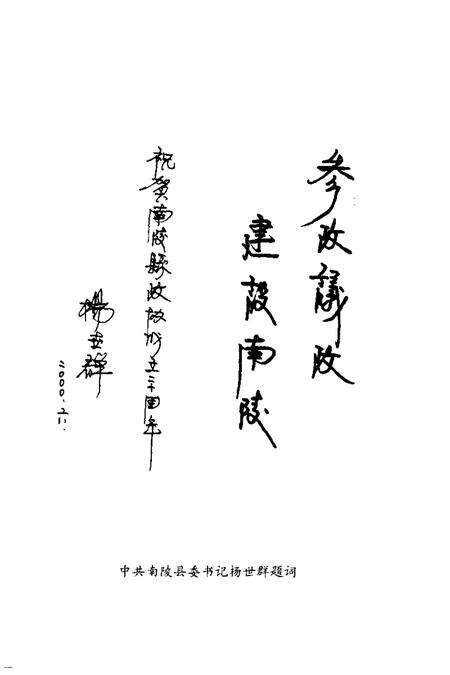 参政議政
建設南陵
祝贺南陵縣政协成立二十周年
楊世群
二000.六.八.
中共南陵县委书记杨世群题词